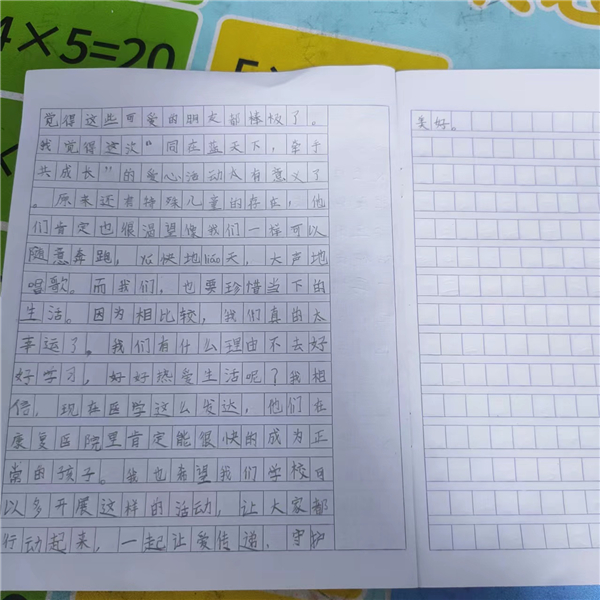 4×5=20
5×
×
觉得这些可爱的朋友都棒极了。
我觉得这次“同在蓝天下，牵手
共成长”的爱心活动太有意义了
。原来还有特殊儿童的存在，他
们肯定也很渴望像我们一样可以
随意奔跑，愉快地liáo天，大声地
唱歌。而我们，也要珍惜当下的
生活。因为相比较，我们真的太
幸运了。我们有什么理由不去好
好学习，好好热爱生活呢？我相
信，现在医学这么发达，他们在
康复医院里肯定能很快的成为正
常的孩子。我也希望我们学校可
以多开展这样的活动，让大家都
行动起来，一起让爱传递，守护
美好。